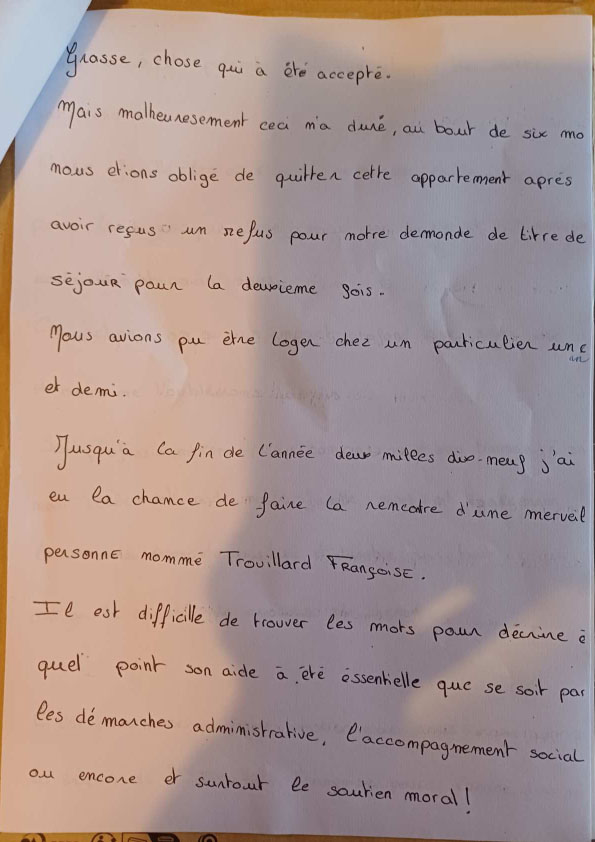 Grasse, chose qui à été accepté.
Mais malheuresement ceci n'a duré, au bout de six mo
nous etions obligé de quitter cette appartement aprés
avoir reçus un refus pour notre demande de titre de
séjour pour la deuxieme fois.
Nous avions pu être loger chez un particulier un
an
et demi.
Jusqu'à la fin de l'année deux milles dix-neuf j'ai
eu la chance de faire la rencotre d'une merveil
personne nommé Trouillard Françoise.
Il est difficille de trouver les mots pour décrire è
quel point son aide à été éssentielle que se soit par
les démarches administrative, l'accompagnement social
ou encore et surtout le soutien moral!